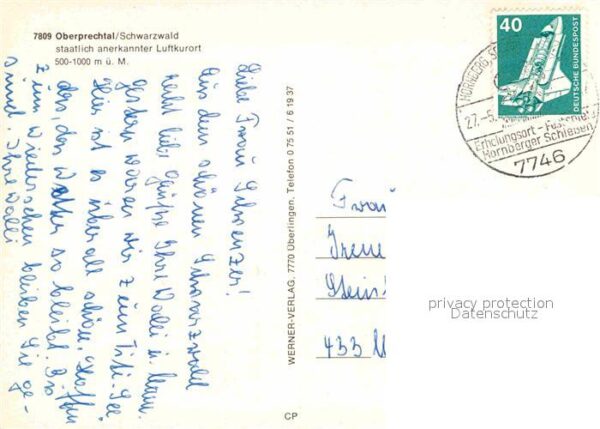 7809 Oberprechtal/Schwarzwald
staatlich anerkannter Luftkurort
500-1000 m ü. M.
Liebe Frau Schwenzer!
Aus dem schönen Schwarzwald
recht liebe Grüße Ihre Walli u. Mann.
Gestern waren wir zum Titi-See
Hier ist es überall schön. Hoffen
das, das Wetter so bleibt. Bis
zum Wiedersehen bleiben Sie ge-
sund. Ihre Walli
WERNER-VERLAG, 7770 Überlingen, Telefon 0 75 51 / 6 19 37
CP
40
DEUTSCHE BUNDESPOST
HORNBERG, SCHWARZW
27.-5.
Erholungsort - Festspiel
Hornberger Schießen
7746
Frau
Irene
Stein
433 M
privacy protection
Datenschutz